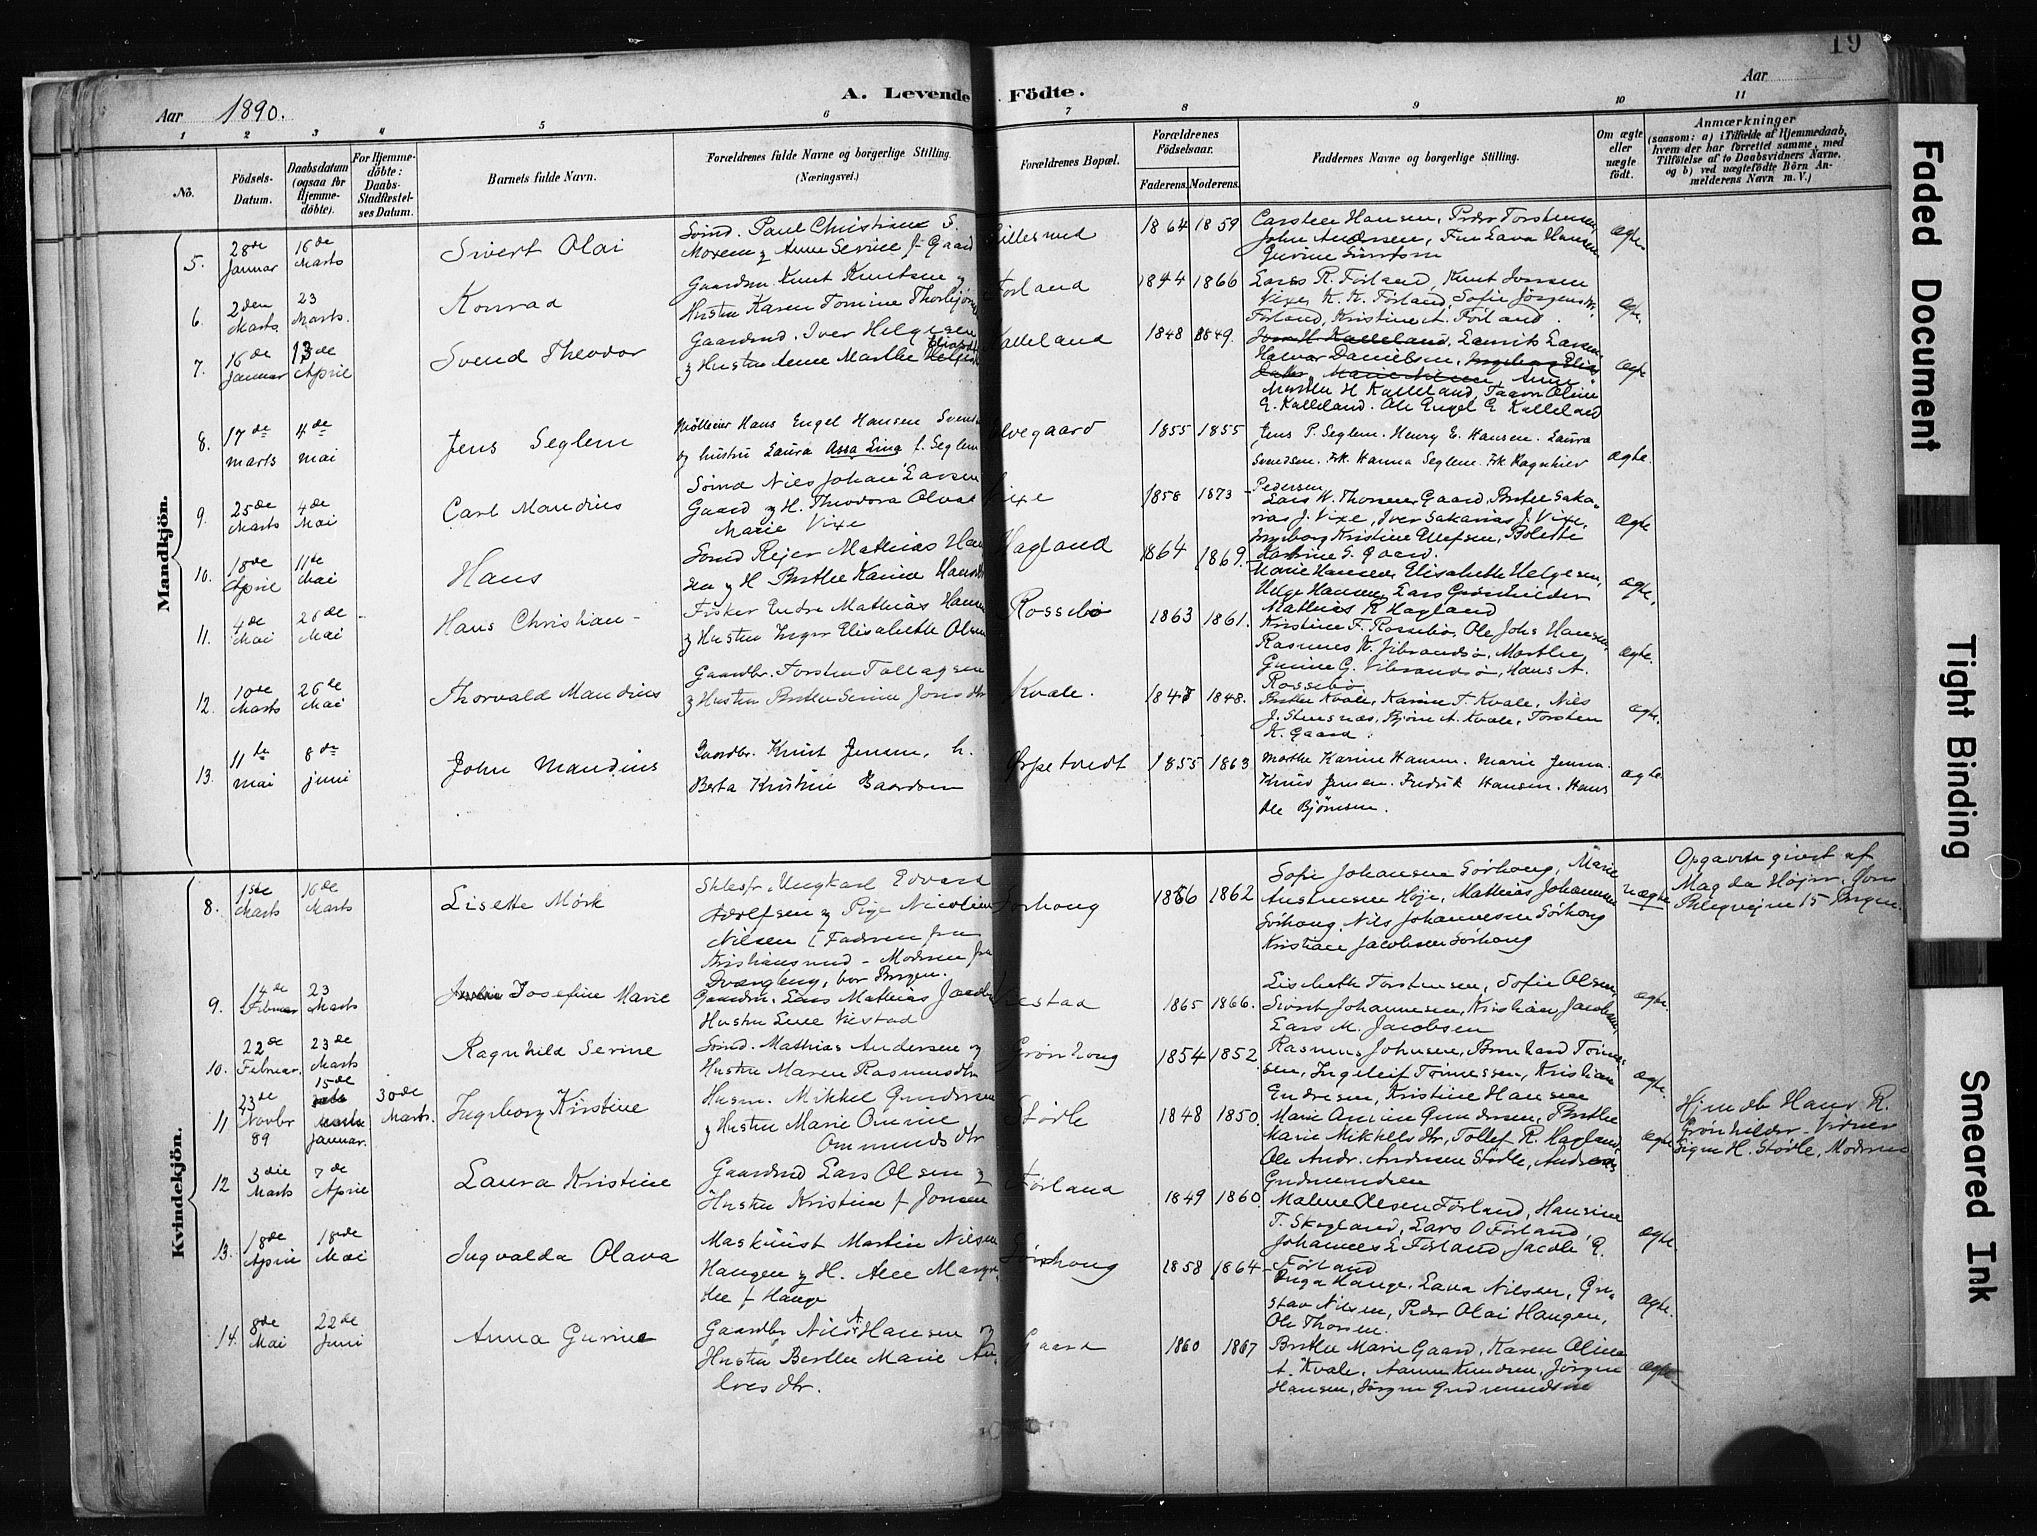 19
Aar 1890.
A. Levende Födte.
Aar
1 2 3 4 5 6 7 8 9 10 11
No.
Födsels-Datum.
Daabsdatum (ogsaa for Hjemme-döbte).
For Hjemme-döbte: Daabs-Stadfæstel-ses Datum.
Barnets fulde Navn.
Forældrenes fulde Navne og borgerlige Stilling. (Næringsvei.)
Forældrenes Bopæl.
Forældrenes Födselsaar.
Faderens. Moderens.
Faddernes Navne og borgerlige Stilling.
Om ægte eller uægte födt.
Anmærkninger
(saasom: a) i Tilfælde af Hjemmedaab, hvem der har forrettet samme, med Tilföielse af to Daabsvidners Navne. og b) ved uægtefödte Börn Anmelderens Navn m. V.)
Mandkjön.
5. 28de Januar 16de Marts Sivert Olai
Sømd. Paul Christian S.
Moxem og Anne Serine f. Gaard
Lillesund 1864 1859
Carsteen Hansen, Peder Torstensen,
John Andersen, Fru Lava Hansen
Gurine Simonsen
ægte
6. 2den Marts 23 Marts. Konrad
Gaardm. Knut Knutsen og
Hustru Karen Tomine Thorbjørns
Førland 1844 1866
Lars R. Førland, Knut Jonsen
Vixe, K. K. Førland, Sofie Jørgensdtr.
Førland, Kristine A. Førland.
ægte.
7. 16de Januar 13de April Svend Theodor
Gaardmd. Iver Helgesen
og Hustru Anne Marthe
Kalleland 1848 1849.
Jon H. Kalleland, Lauritz Larsen
Halvor Danielsen, Ingeborg Elias
Marie Nilsen, Anne
Marthe H Kalleland, Taarn Oline
E. Kalleland. Ole Engel E Kalleland
ægte
8. 17de marts 4de mai Jens Seglem
Mölleier Hans Engel Hansen Svends
og hustru Laura Assa Lina f. Seglem
Elvegaard 1855 1855
Jens P. Seglem. Henry E. Hansen. Laura
Svendsen. Frk. Hanna Seglem. Frk Ragnhild
Pedersen
ægte.
9. 25de Marts 4de Mai Carl Mandius
Sömd Nils Johan Larsen
Gaard og H. Theodora Olava
Marie Vixe
Vixe 1858 1873
Lars W. Thorsen Gaard, Berthe Saka-
rias J. Vixe, Iver Sakarias J. Vixe,
Ingeborg Kristine Ellefsen, Bolette
Karine S. Gaard.
ægte
10. 18de April 11te Mai Hans
Sömd Reier Mathias Han
sen og H Berthe Karine Hansdtr
Hagland 1864 1869.
Marie Hansen, Elisabeth Helgesen,
Helge Hansen, Lars Grønhilder
Mathias R Hagland
ægte.
11. 4de Mai 26de Mai Hans Christian
Fisker Endre Mathias Hansen
og Hustru Inger Elisabeth Olsen
Rossebø 1863 1861.
Kristine F. Rossebø, Ole Johs Hansen,
Rasmus K. Vibrandsø, Marthe
Gurine G. Vibrandsø, Hans A.
Rossebø
ægte.
12. 10de Marts 26de Mai Thorvald Mandius
Gaardbr. Torsten Tollagsen
og Hustru Berthe Serine Jonsdtr
Kvale. 1847 1848.
Berthe Kvale, Karine T. Kvale, Nils
J. Stensnæs, Bjørn A. Kvale, Torsten
K. Gaard.
ægte.
13. 11te mai 8de juni John Mandius
Gaardbr. Knut Jensen, h.
Berta Kristine Gaardsen
Ørpetvedt 1855 1863
Marthe Karine Hansen. Marie Jensen.
Knud Jensen. Fredrik Hansen. Hans
Ole Bjørnsen.
ægte
Kvindekjön.
8. 1ste Marts 16de Marts Lisette Mörk
Skbsfr. Ungkarl Edvard
Adolfsen og Pige Nicoline
Nilsen (Faderen fra
Kristiansund - Moderen fra
Dvergberg, bor Bergen.
Sørhoug 1866 1862
Sofie Johansen Sørhoug, Marie
Anstensen Høje, Mathias Johannesen
Sørhoug, Nils Johannesen Sørhoug
Kristian Jacobsen Sørhoug
uægte
Opgavde givet af
Magda Højer,
15 Bergen.
9. 14de Februar 23 Marts Josefine Marie
Gaardm. Lars Mathias Jacobs
Hustru Lene Vestad
Vestad 1865 1866.
Lisbeth Torstensen, Sofie Olsen,
Sivert Johannesen, Kristian Jacobsen,
Lars M. Jacobsen
ægte
10. 22de Februar. 23de Marts Ragnhild Serine
Sømd. Mathias Andersen og
Hustru Maren Rasmusdtr
Grønhoug 1854 1852
Rasmus Johnsen, Bernhard Tønnes-
sen, Ingeleif Tønnessen, Kristian
Endresen, Kristine Hansen
ægte.
11 23de Novbr 89 15de Januar. 30de Marts. Ingeborg Kristine
Husm. Mikkel Gundersen
og Hustru Marie Omine
Ommundsdtr
Støle 1848 1850
Marie Amine Gundersen, Berthe
Marie Mikkelsdtr, Tollef R. Hagland,
Ole Andr. Andersen Støle, Andreas
Gudmundsen
ægte
Hjemdb Hans R.
Grønhilder. Vidner
Signe H. Støle, Moderen
12 3die Marts 7de April Laura Kristine
Gaardmd Lars Olsen og
Hustru Kristine f Jonsen
Førland 1849 1860.
Malene Olsen Førland, Hansine
T. Skogland, Lars O Førland,
Johannes L Førland, Jacob E.
Førland
ægte.
13. 18de April 18de Mai Ingvalda Olava
Maskinist Martin Nilsen
Haugen og H. Ane Margre-
the f Hauge
Sørhoug 1858 1864
Inga Hauge, Lava Nilsen, Gu-
stav Nilsen, Peder Olai Haugen,
Ole Thorsen.
ægte.
14. 8de Mai 22de Juni Anna Gurine
Gaardbr Nils A Hansen og
Hustru Berthe Marie An-
dresdtr.
Gaard 1860 1867
Berthe Marie Gaard, Karen Oline
A. Kvale, Aanen Knudsen, Jørgen
Hansen, Jørgen Gudmundsen
ægte
Faded Document
Tight Binding
Smeared Ink